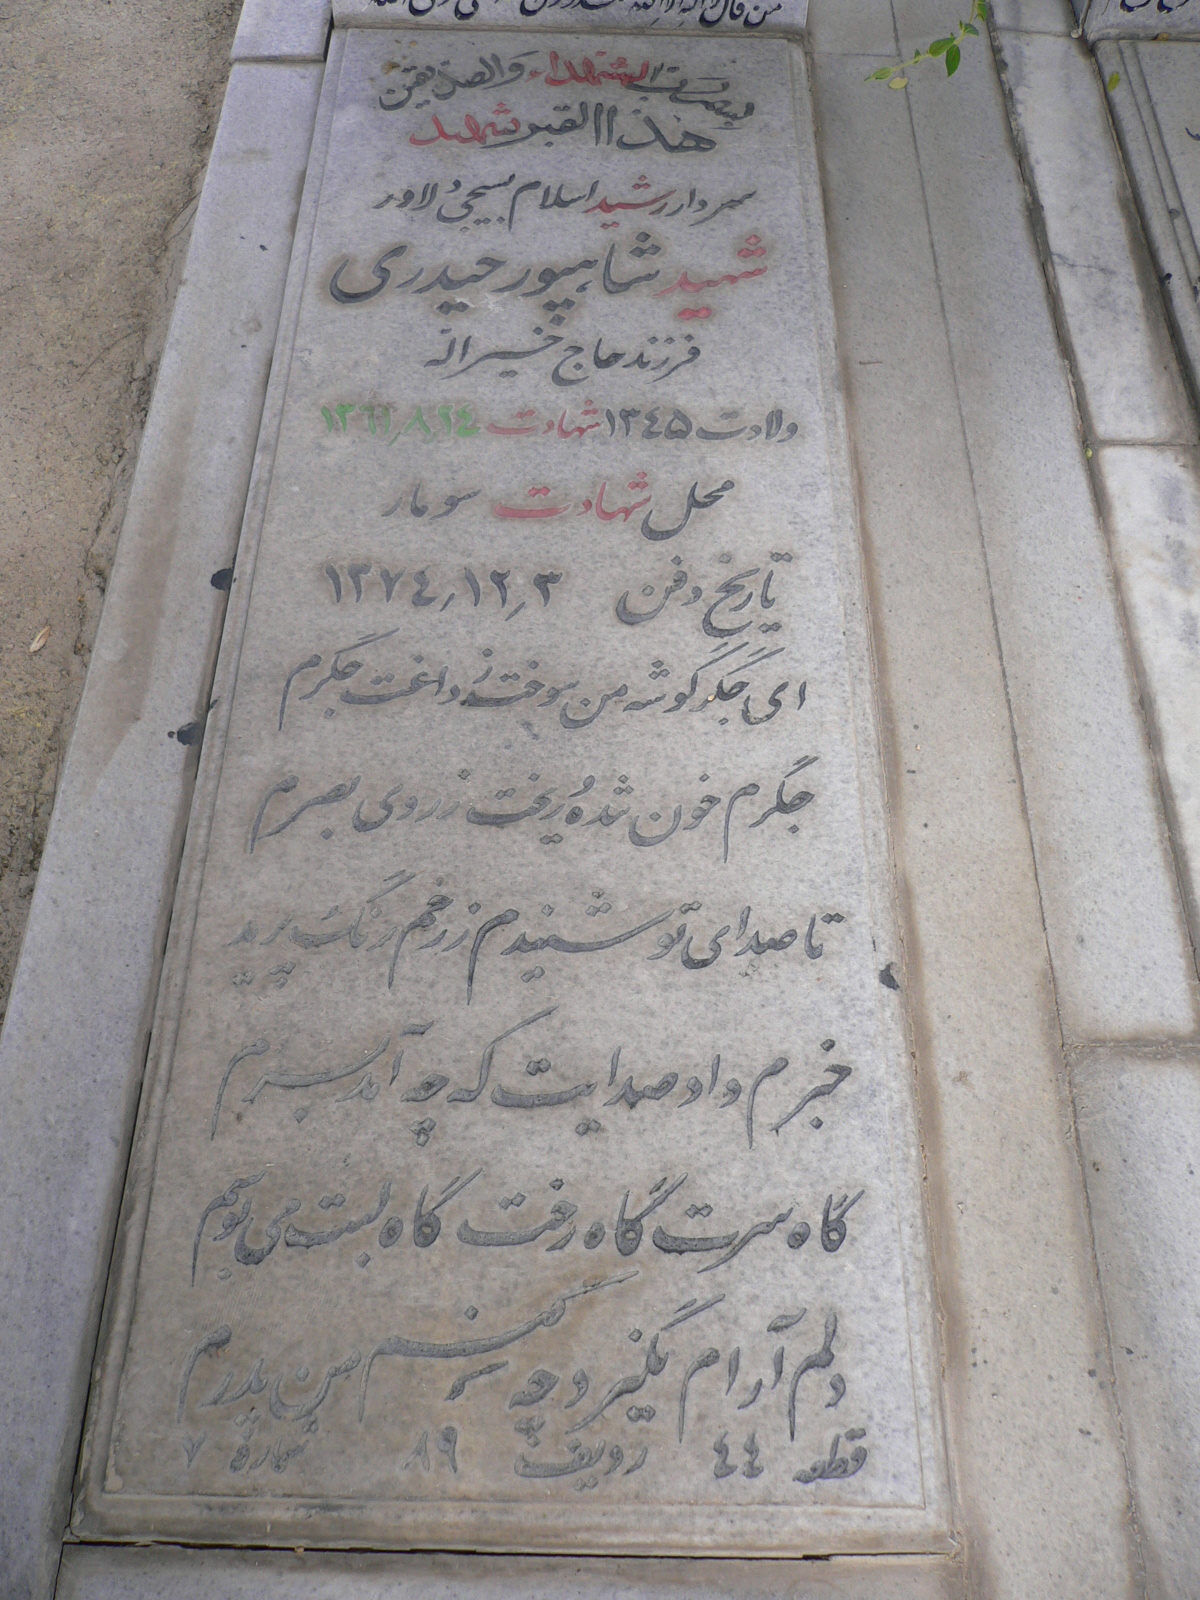 من قال لا اله الا الله
بسم رب الشهداء والصدیقین
هذا القبر شهید
سردار رشید اسلام بسیجی دلاور
شهید شاهپور حیدری
فرزند حاج خیراله
ولادت ۱۳٤۵ شهادت ۱۳٦۱٫۸٫۲٤
محل شهادت سومار
تاریخ دفن ۳٫۱۲٫۱۳۷٤
ای جگر گوشه من سوخته ز داغت جگرم
جگرم خون شده و ریخت ز روی بصرم
تا صدای تو شنیدم ز رخم رنگ پرید
خبرم داد صدایت که چه آمد بسرم
گاه سرت گاه رخت گاه لبت می بوسم
دلم آرام نگیرد چه کنم من پدرم
قطعه ٤٤ ردیف ۸۹ شماره ۷